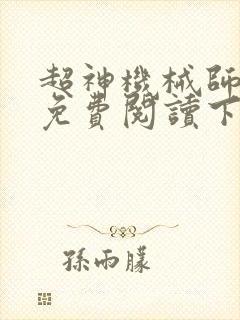 超神機械師
免費閱讀下
孫雨朦